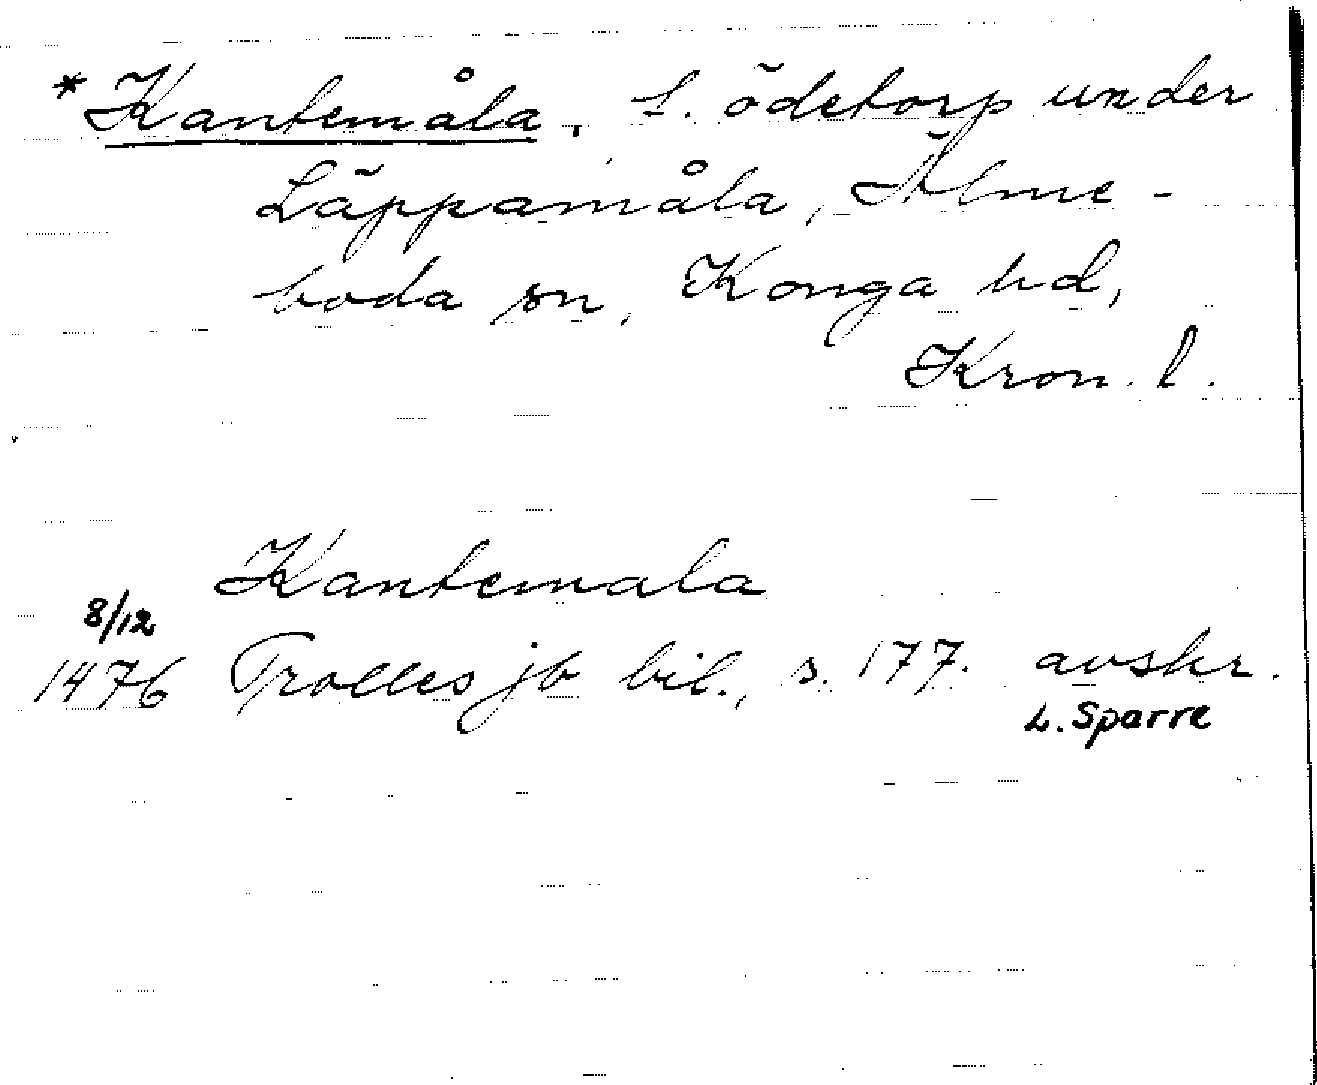 *Kantemåla, f. ödetorp under
Läppamåla, Älme-
boda sn, Konga hd,
Kron. l.
Kantemala
8/12
1476 Trolles jb bil., s. 177. avskr.
L. Sparre